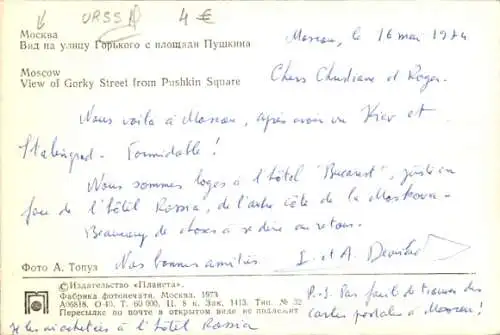 URSS 4 €
Москва
Вид на улицу Горького с площади Пушкина
Moscow
View of Gorky Street from Pushkin Square
Moscou, le 16 mai 1974
Chers Christiane et Roger.
Nous voilà à Moscou, après avoir vu Kiev et
Stalingrad. Formidable!
Nous sommes logés à l'hôtel "Bucarest", juste en
face de l'hôtel Rossia, de l'autre côté de la Moskova.
Beaucoup de choses à se dire au retour.
Nos bonnes amitiés. et A.
Фото А. Топуз
©Издательство «Планета».
Фабрика фотопечати. Москва. 1973
А06818. О-40. Т. 60 000. Ц. 8 к. Зак. 1413. Тип. № 32
Пересылке по почте в открытом виде не подлежит
P.S. Pas facile de trouver des
cartes postales à Moscou!
Je les ai achetées à l'hôtel Rossia